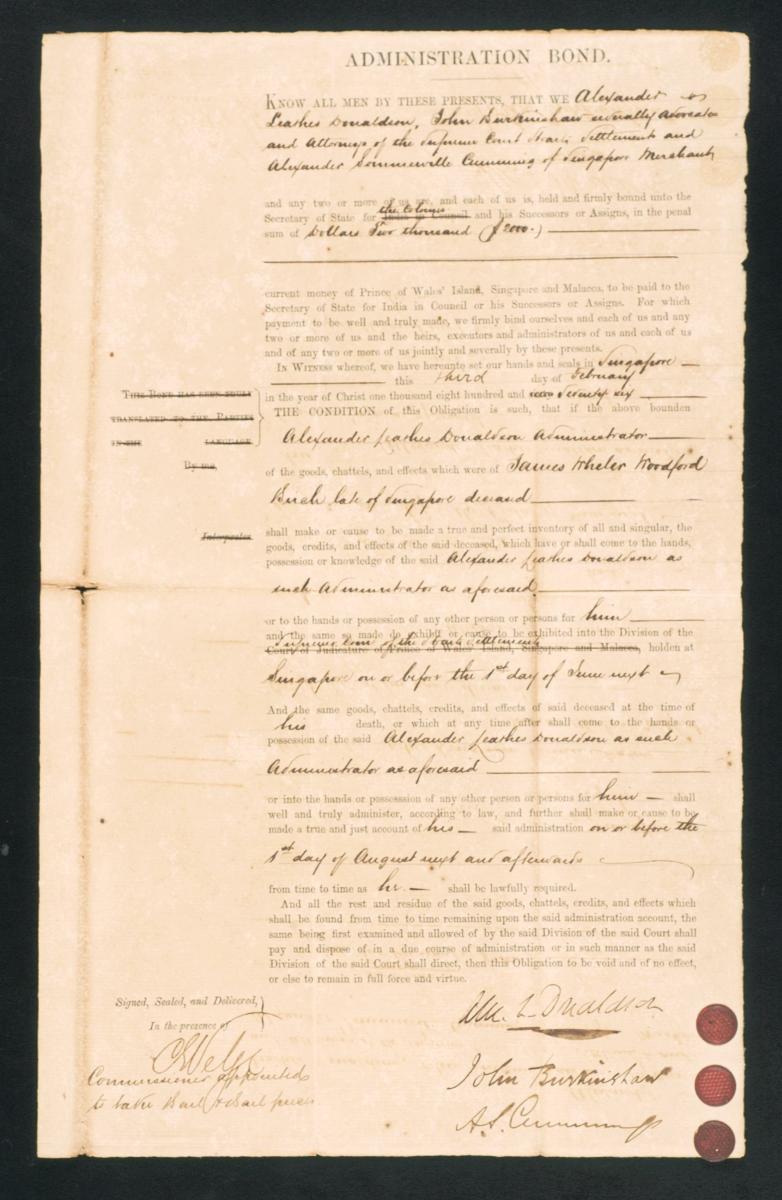 ADMINISTRATION BOND.
KNOW ALL MEN BY THESE PRESENTS, THAT WE Alexander
Leathes Donaldson, John Burkinshaw severally Advocates
and Attorneys of the Supreme Court Straits Settlements and
Alexander Sommerville Cumming of Singapore Merchant
and any two or more of us are, and each of us is, held and firmly bound unto the
the Colonies
Secretary of State for India in Council and his Successors or Assigns, in the penal
sum of Dollars Two thousand ($2000.)
current money of Prince of Wales' Island, Singapore and Malacca, to be paid to the
Secretary of State for India in Council or his Successors or Assigns. For which
payment to be well and truly made, we firmly bind ourselves and each of us and any
two or more of us and the heirs, executors and administrators of us and each of us
and of any two or more of us jointly and severally by these presents.
IN WITNESS whereof, we have hereunto set our hands and seals in Singapore
this third day of February
in the year of Christ one thousand eight hundred and Seventy six
THIS BOND HAS BEEN
TRANSLATED TO THE PARTIES
IN THE LANGUAGE
By me
Interpreter
THE CONDITION of this Obligation is such, that if the above bounden
Alexander Leathes Donaldson Administrator
of the goods, chattels, and effects which were of James Wheeler Woodford
Birch late of Singapore deceased
shall make or cause to be made a true and perfect inventory of all and singular, the
goods, credits, and effects of the said deceased, which have or shall come to the hands,
possession or knowledge of the said Alexander Leathes Donaldson as
such Administrator as aforesaid
or to the hands or possession of any other person or persons for him
and the same so made do exhibit or cause to be exhibited into the Division of the
Supreme Court of the Straits Settlements
Court of Judicature of Prince of Wales' Island, Singapore and Malacca, holden at
Singapore on or before the 1st day of June next
And the same goods, chattels, credits, and effects of said deceased at the time of
his death, or which at any time after shall come to the hands or
possession of the said Alexander Leathes Donaldson as such
Administrator as aforesaid
or into the hands or possesssion of any other person or persons for him shall
well and truly administer, according to law, and further shall make or cause to be
made a true and just account of his said administration on or before the
1st day of August next and afterwards
from time to time as he shall be lawfully required.
And all the rest and residue of the said goods, chattels, credits, and effects which
shall be found from time to time remaining upon the said administration account, the
same being first examined and allowed of by the said Division of the said Court shall
pay and dispose of in a due course of administration or in such manner as the said
Division of the said Court shall direct, then this Obligation to be void and of no effect,
or else to remain in full force and virtue.
Signed, Sealed, and Delivered,
In the presence of
Commissioner appointed
to take Bail & Bail pieces
Alex. L. Donaldson
John Burkinshaw
A. S. Cumming